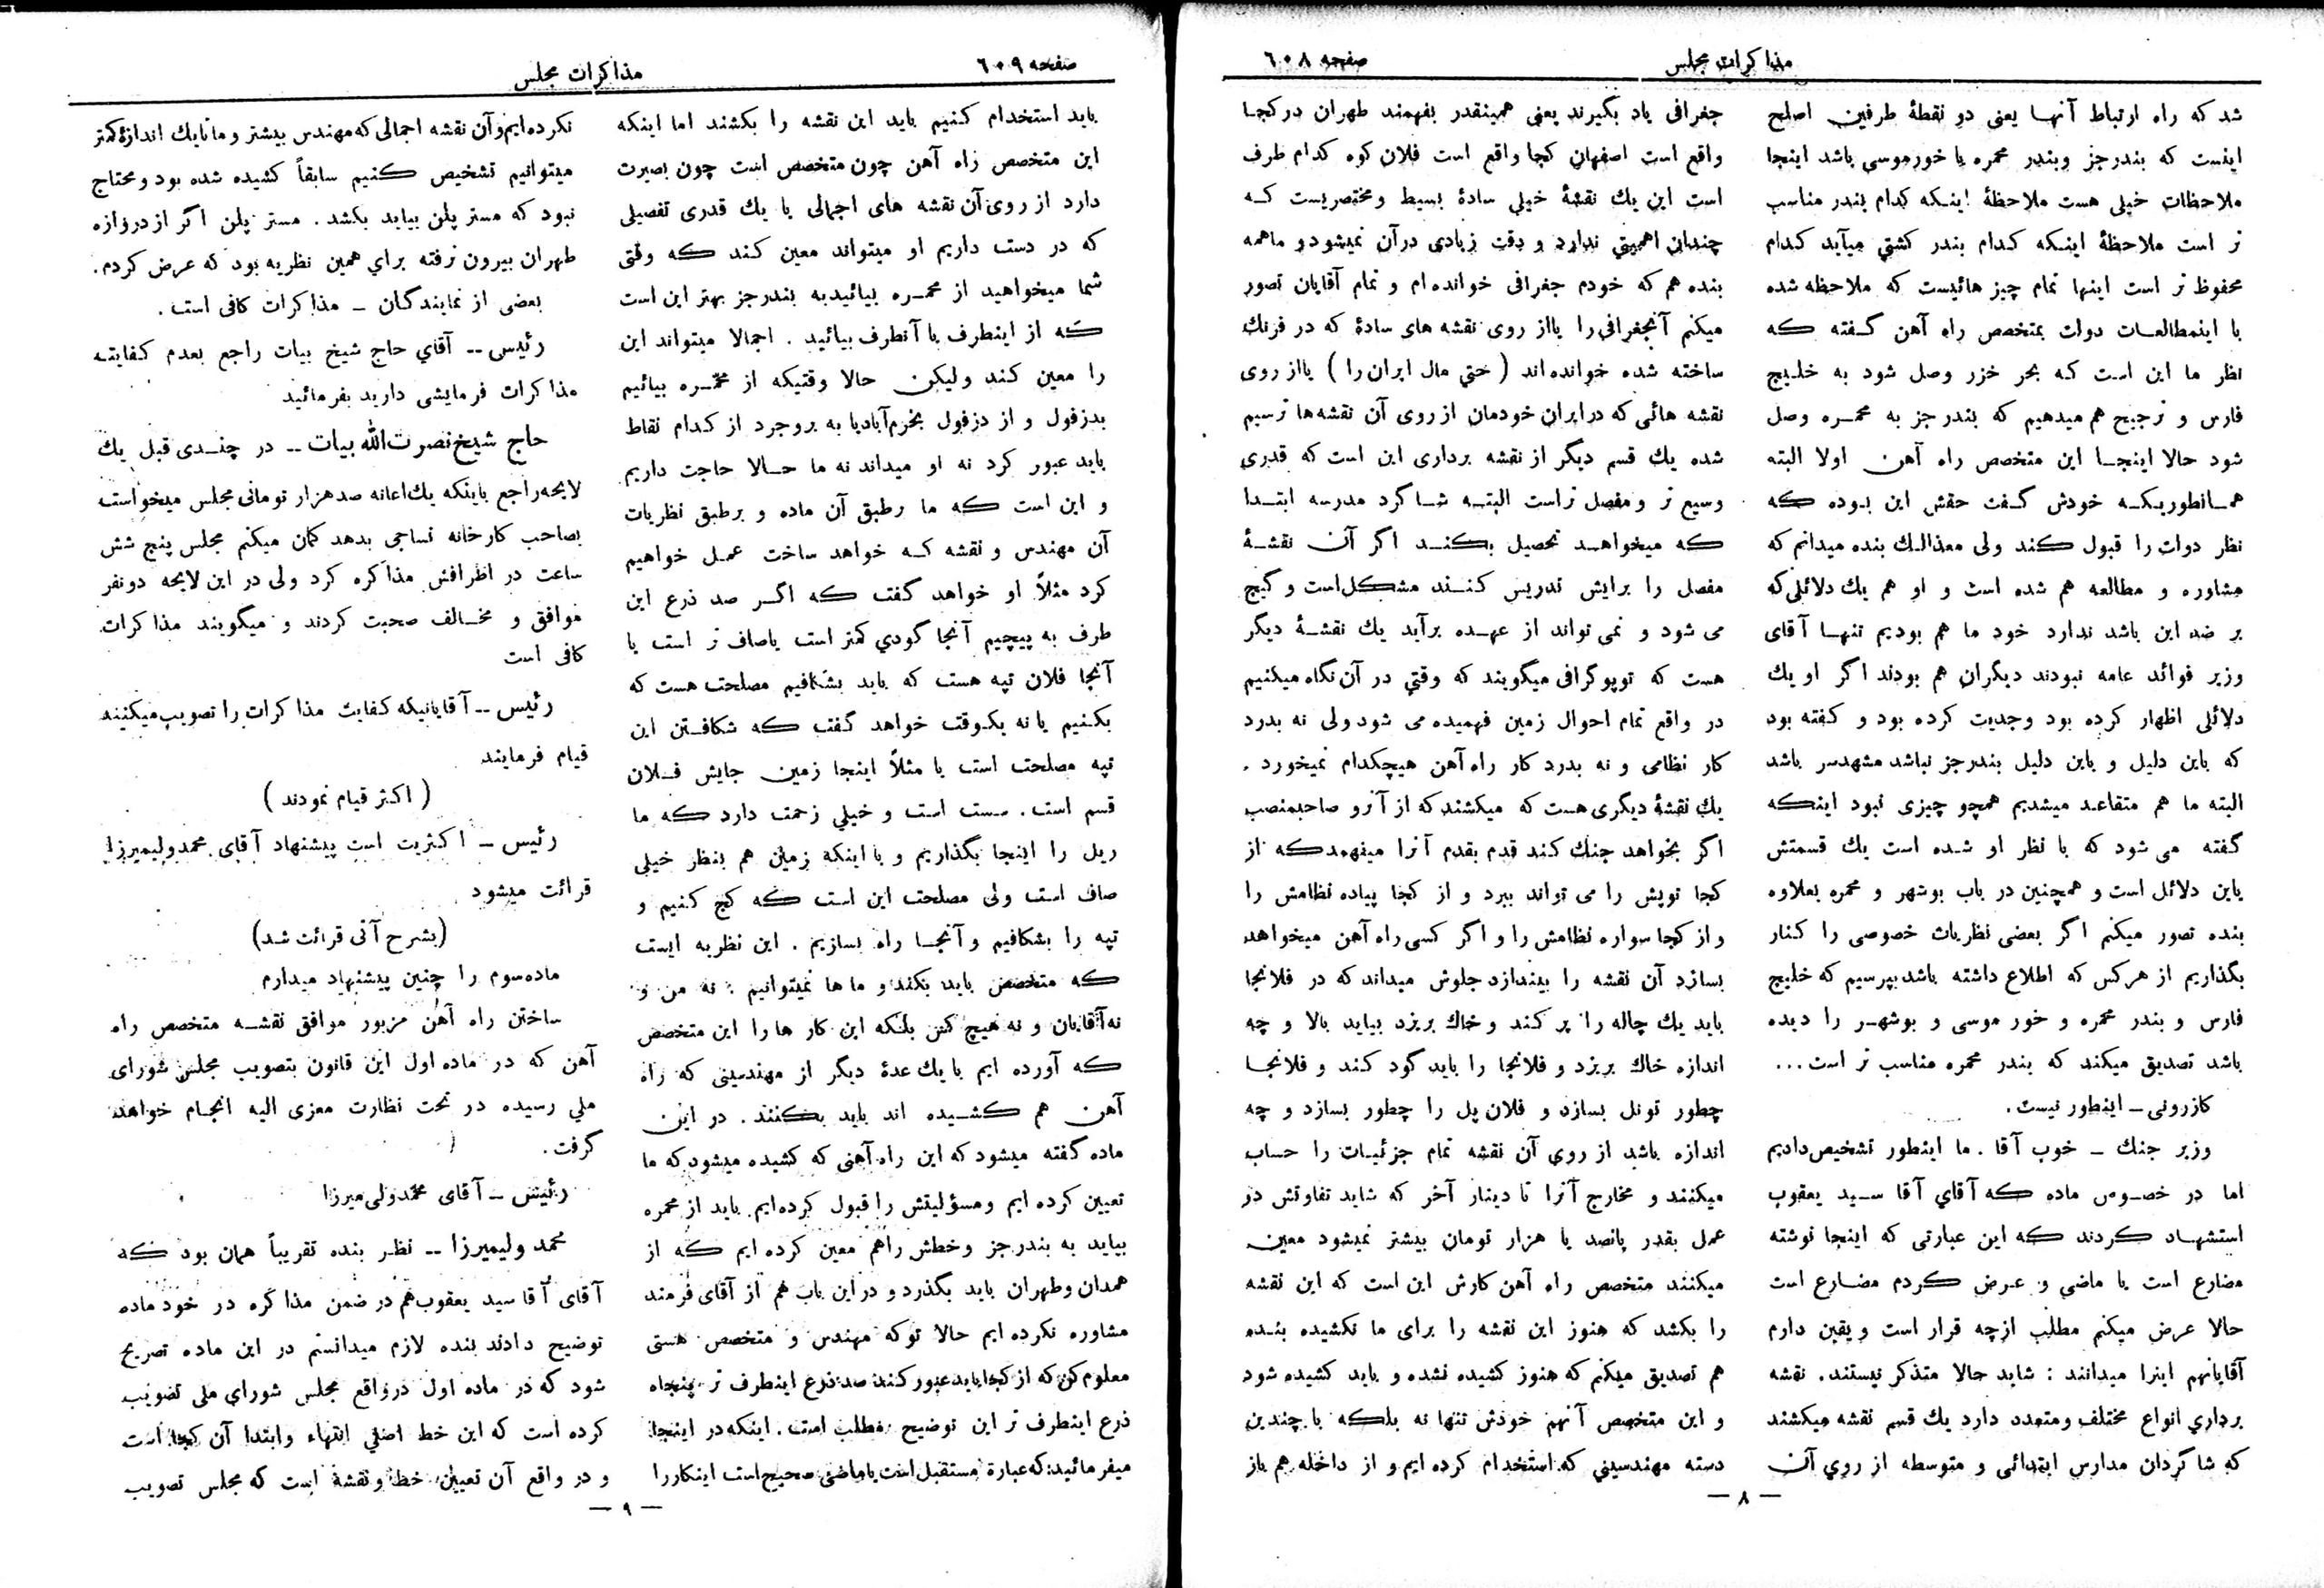 مذاکرات مجلس
صفحه ٦٠٨
شد که راه ارتباط آنها یعنی دو نقطهٔ طرفین اصلح
اینست که بندرجز وبندر محمره یا خورموسی باشد اینجا
ملاحظات خیلی هست ملاحظهٔ اینکه کدام بندر مناسب
تر است ملاحظهٔ اینکه کدام بندر کشتی میآید کدام
محفوظ تر است اینها تمام چیز هائیست که ملاحظه شده
با اینمطالعات دولت بمتخصص راه آهن گفته که
نظر ما این است که بحر خزر وصل شود به خلیج
فارس و ترجیح هم میدهیم که بندرجز به محمره وصل
شود حالا اینجا این متخصص راه آهن اولا البته
همانطوریکه خودش گفت حقش این بوده که
نظر دولت را قبول کند ولی معذالك بنده میدانم که
مشاوره و مطالعه هم شده است و او هم یك دلائلی که
بر ضد این باشد ندارد خود ما هم بودیم تنها آقای
وزیر فوائد عامه نبودند دیگران هم بودند اگر او یك
دلائلی اظهار کرده بود وجدیت کرده بود و گفته بود
که باین دلیل و باین دلیل بندرجز نباشد مشهدسر باشد
البته ما هم متقاعد میشدیم همچو چیزی نبود اینکه
گفته می شود که با نظر او شده است یك قسمتش
باین دلائل است و همچنین در باب بوشهر و محمره بعلاوه
بنده تصور میکنم اگر بعضی نظریات خصوصی را کنار
بگذاریم از هرکس که اطلاع داشته باشد بپرسیم که خلیج
فارس و بندر محمره و خور موسی و بوشهر را دیده
باشد تصدیق میکند که بندر محمره مناسب تر است...
کازرونی ـ اینطور نیست.
وزیر جنك ـ خوب آقا. ما اینطور تشخیص دادیم
اما در خصوص ماده که آقای آقا سید یعقوب
استشهاد کردند که این عبارتی که اینجا نوشته
مضارع است یا ماضی و عرض کردم مضارع است
حالا عرض میکنم مطلب ازچه قرار است و یقین دارم
آقایانهم اینرا میدانند : شاید حالا متذکر نیستند. نقشه
برداری انواع مختلف ومتعدد دارد یك قسم نقشه میکشند
که شاگردان مدارس ابتدائی و متوسطه از روی آن
جغرافی یاد بگیرند یعنی همینقدر بفهمند طهران درکجا
واقع است اصفهان کجا واقع است فلان کوه کدام طرف
است این یك نقشهٔ خیلی سادهٔ بسیط ومختصریست که
چندان اهمیتی ندارد و دقت زیادی درآن نمیشود و ماهمه
بنده هم که خودم جغرافی خوانده ام و تمام آقایان تصور
میکنم آنجغرافی را یااز روی نقشه های سادهٔ که در فرنك
ساخته شده خوانده اند ( حتی مال ایران را ) یااز روی
نقشه هائی که در ایران خودمان ازروی آن نقشه ها ترسیم
شده یك قسم دیگر از نقشه برداری این است که قدری
وسیع تر و مفصل تر است البته شاگرد مدرسه ابتدا
که میخواهد تحصیل بکند اگر آن نقشهٔ
مفصل را برایش تدریس کنند مشکل است و گیج
می شود و نمی تواند از عهده برآید یك نقشهٔ دیگر
هست که توپوگرافی میگویند که وقتی در آن نگاه میکنیم
در واقع تمام احوال زمین فهمیده می شود ولی نه بدرد
کار نظامی و نه بدرد کار راه آهن هیچکدام نمیخورد.
یك نقشهٔ دیگری هست که میکشند که از آنرو صاحبمنصب
اگر بخواهد جنك کند قدم بقدم آنرا میفهمد که از
کجا توپش را می تواند ببرد و از کجا پیاده نظامش را
و از کجا سواره نظامش را و اگر کسی راه آهن میخواهد
بسازد آن نقشه را بیندازد جلوش میداند که در فلانجا
باید یك چاله را پر کند و خاك بریزد بیاید بالا و چه
اندازه خاك بریزد و فلانجا را باید گود کند و فلانجا
چطور تونل بسازد و فلان پل را چطور بسازد و چه
اندازه باشد از روی آن نقشه تمام جزئیات را حساب
میکنند و مخارج آنرا تا دینار آخر که شاید تفاوتش در
عمل بقدر پانصد یا هزار تومان بیشتر نمیشود معین
میکنند متخصص راه آهن کارش این است که این نقشه
را بکشد که هنوز این نقشه را برای ما نکشیده بنده
هم تصدیق میکنم که هنوز کشیده نشده و باید کشیده شود
و این متخصص آنهم خودش تنها نه بلکه با چندین
دسته مهندسینی که استخدام کرده ایم و از داخله هم باز
— ٨ —
صفحه ٦٠٩
مذاکرات مجلس
باید استخدام کنیم باید این نقشه را بکشند اما اینکه
این متخصص راه آهن چون متخصص است چون بصیرت
دارد از روی آن نقشه های اجمالی یا یك قدری تفصیلی
که در دست داریم او میتواند معین کند که وقتی
شما میخواهید از محمره بیائید به بندرجز بهتر این است
که از اینطرف یا آنطرف بیائید. اجمالا میتواند این
را معین کند ولیکن حالا وقتیکه از محمره بیائیم
بدزفول و از دزفول بخرم آباد یا به بروجرد از کدام نقاط
باید عبور کرد نه او میداند نه ما حالا حاجت داریم
و این است که ما رطبق آن ماده و برطبق نظریات
آن مهندس و نقشه که خواهد ساخت عمل خواهیم
کرد مثلاً او خواهد گفت که اگر صد ذرع این
طرف به پیچیم آنجا گودی کمتر است یاصاف تر است یا
آنجا فلان تپه هست که باید بشکافیم مصلحت هست که
بکنیم یا نه یکوقت خواهد گفت که شکافتن این
تپه مصلحت است یا مثلاً اینجا زمین جایش فلان
قسم است. سست است و خیلی زحمت دارد که ما
ریل را اینجا بگذاریم و با اینکه زمین هم بنظر خیلی
صاف است ولی مصلحت این است که کج کنیم و
تپه را بشکافیم و آنجا راه بسازیم. این نظریه ایست
که متخصص باید بکند و ما ها نمیتوانیم : نه من و
نه آقایان و نه هیچ کس بلکه این کار ها را این متخصص
که آورده ایم با یك عدهٔ دیگر از مهندسینی که راه
آهن هم کشیده اند باید بکنند. در این
ماده گفته میشود که این راه آهنی که کشیده میشود که ما
تعیین کرده ایم ومسؤلیتش را قبول کرده ایم باید از محمره
بیاید به بندرجز وخطش راهم معین کرده ایم که از
همدان وطهران باید بگذرد و در این باب هم از آقای فرمند
مشاوره نکرده ایم حالا توکه مهندس و متخصص هستی
معلوم کن که از کجا باید عبور کند صد ذرع اینطرف تر پنجاه
ذرع اینطرف تر این توضیح مطلب است. اینکه در اینجا
میفرمائید که عبارة مستقبل است یا ماضی صحیح است اینکار را
نکرده ایم و آن نقشه اجمالی که مهندس بیشتر و ما تایك اندازهٔ کمتر
میتوانیم تشخیص کنیم سابقاً کشیده شده بود و محتاج
نبود که مستر پلن بیاید بکشد. مستر پلن اگر از دروازه
طهران بیرون نرفته برای همین نظریه بود که عرض کردم.
بعضی از نمایندگان ـ مذاکرات کافی است.
رئیس ـ آقای حاج شیخ بیات راجع بعدم کفایت
مذاکرات فرمایشی دارید بفرمائید
حاج شیخ نصرت الله بیات ـ در چندی قبل یك
لایحه راجع باینکه یك اعانه صد هزار تومانی مجلس میخواست
بصاحب کارخانه نساجی بدهد گمان میکنم مجلس پنج شش
ساعت در اطرافش مذاکره کرد ولی در این لایحه دونفر
موافق و مخالف صحبت کردند و میگویند مذاکرات
کافی است
رئیس ـ آقایانیکه کفایت مذاکرات را تصویب میکنند
قیام فرمایند
( اکثر قیام نمودند )
رئیس ـ اکثریت است پیشنهاد آقای محمدولیمیرزا
قرائت میشود
(بشرح آتی قرائت شد)
ماده سوم را چنین پیشنهاد میدارم
ساختن راه آهن مزبور موافق نقشه متخصص راه
آهن که در ماده اول این قانون بتصویب مجلس شورای
ملی رسیده در تحت نظارت معزی الیه انجام خواهد
گرفت.
رئیس ـ آقای محمدولی میرزا
محمد ولیمیرزا ـ نظر بنده تقریباً همان بود که
آقای آقا سید یعقوب هم در ضمن مذاکره در خود ماده
توضیح دادند بنده لازم میدانستم در این ماده تصریح
شود که در ماده اول درواقع مجلس شورای ملی تصویب
کرده است که این خط اصلی انتهاء وابتدا آن کجا است
و در واقع آن تعیین خط و نقشهٔ است که مجلس تصویب
— ٩ —